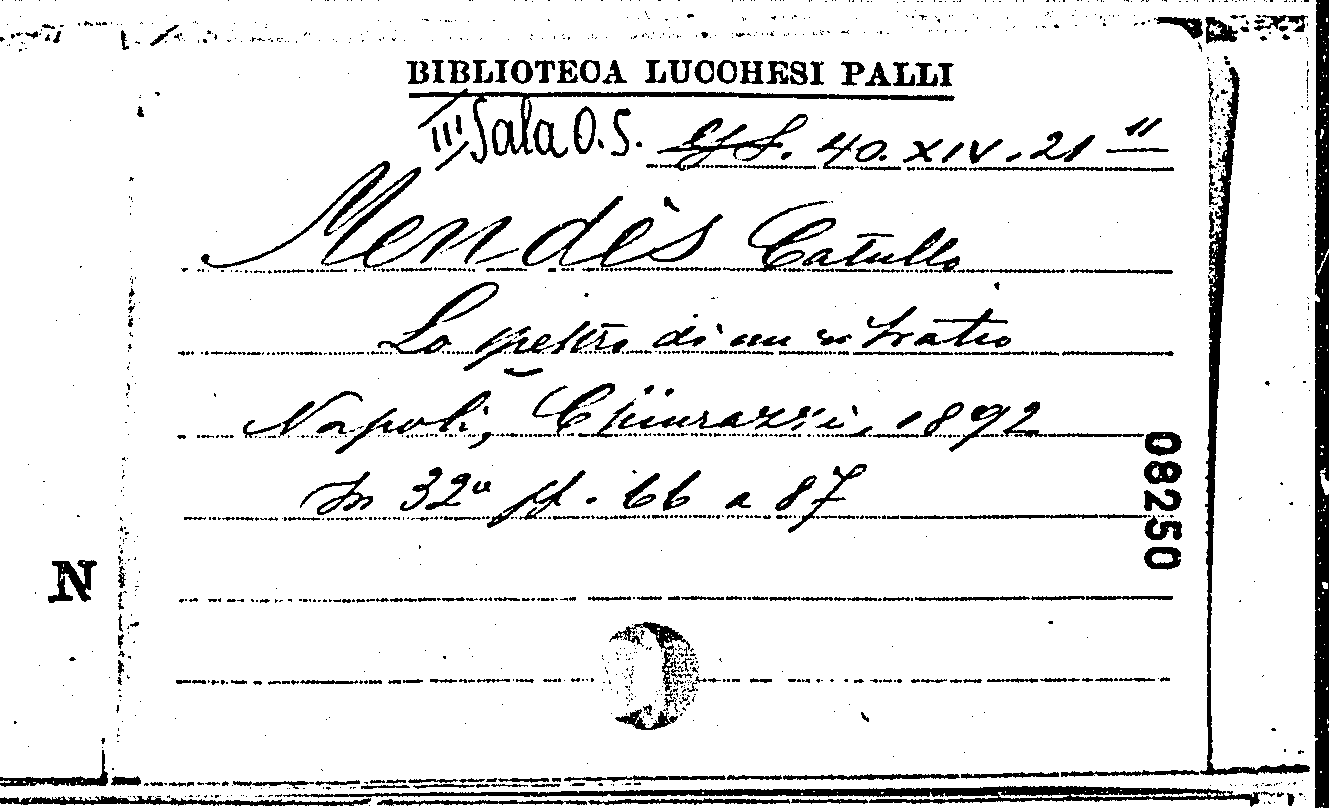 BIBLIOTECA LUCCHESI PALLI
III Sala O.S. 40. XIV. 21 "
Mendès Catullo
Lo spettro di un ritratto
Napoli, Chiurazzi, 1892
In 32º pp. 66 a 87
08250
N